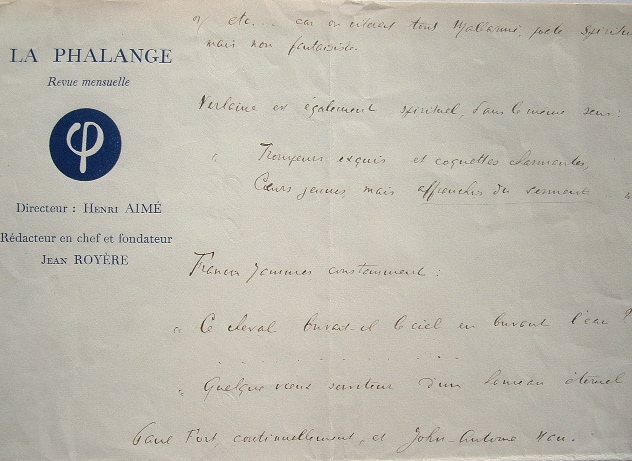 LA PHALANGE
Revue mensuelle
φ
Directeur : Henri AIMÉ
Rédacteur en chef et fondateur
Jean ROYÈRE
etc... car on citerait tout Mallarmé, poète spirituel
mais non fantaisiste.
Verlaine est également spirituel, dans le même sens :
" Trompeurs exquis et coquettes charmantes,
Cœurs jeunes mais affranchis du serment "
Francis Jammes constamment :
" Ce cheval buvait-il le ciel en buvant l'eau ?
. . . . . . . . . .
" Quelque vieux serviteur d'un hameau éternel
Paul Fort, continuellement, et John-Antoine Nau.